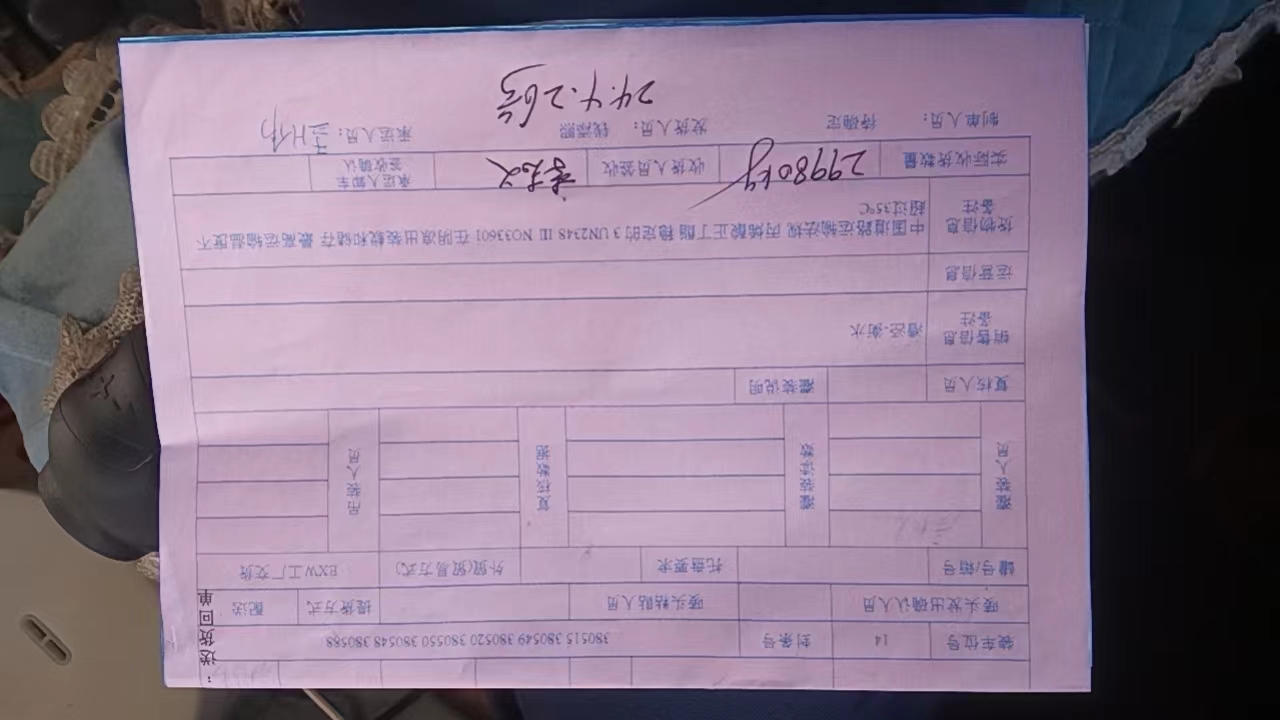 装车位号 14 封条号 380515 380549 380520 380550 380548 380588
唛头发出确认人员 唛头粘贴人员 提货方式 配送
罐号/箱号 托盘要求 外贸(贸易方式) EXW工厂交货
灌装人员 灌装读数 复核数据 吊装人员
复核人员 灌装说明
销售信息备注 -衡水
运营信息
货物信息备注 中国道路运输法规 丙烯酸正丁酯 稳定的 3 UN2348 III NO33601 在阴凉出装载和储存 最高运输温度不
超过35°C
实际收货数量 29980kg 收货人员签收 承运人卸车签收确认
制单人员： 待确定 发货人员： 承运人员：
24.4.26号
送货回单